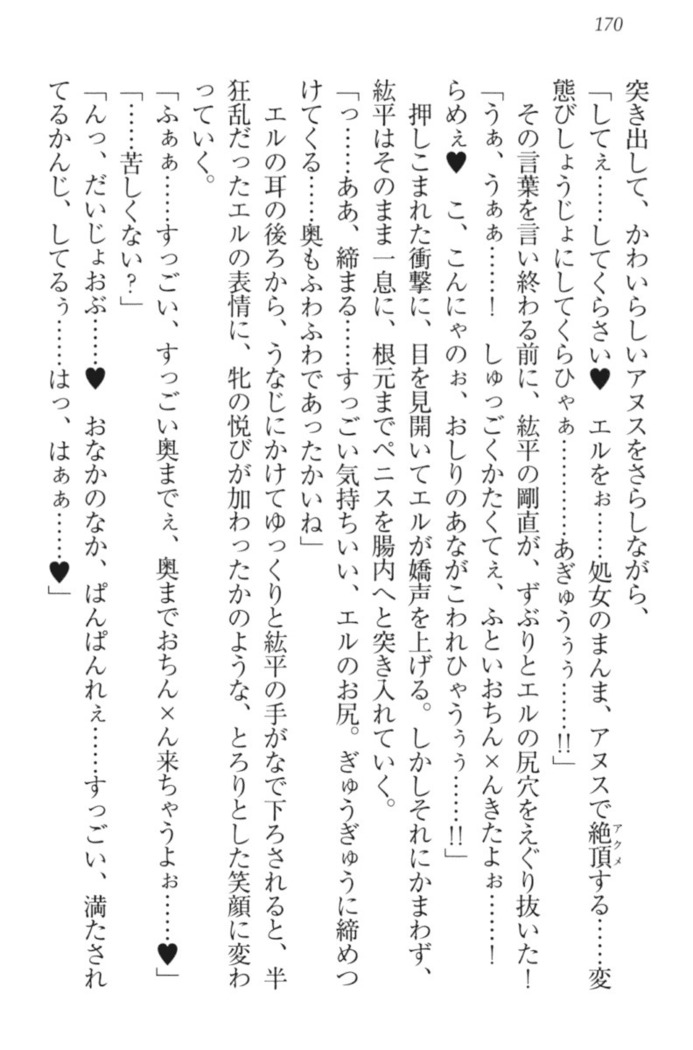 170
突き出して、かわいらしいアヌスをさらしながら、
「してぇ……してくらさい♥　エルをぉ……処女のまんま、アヌスで絶頂する……変
アクメ
態びしょうじょにしてくらひゃぁ…………あぎゅうぅぅ……!!」
　その言葉を言い終わる前に、紘平の剛直が、ずぶりとエルの尻穴をえぐり抜いた！
「うぁ、うぁぁ……！　しゅっごくかたくてぇ、ふといおちん×んきたよぉ……！
らめぇ♥　こ、こんにゃのぉ、おしりのあながこわれひゃうぅぅ……!!」
　押しこまれた衝撃に、目を見開いてエルが嬌声を上げる。しかしそれにかまわず、
紘平はそのまま一息に、根元までペニスを腸内へと突き入れていく。
「っ……ああ、締まる……すっごい気持ちいい、エルのお尻。ぎゅうぎゅうに締めつ
けてくる……奥もふわふわであったかいね」
　エルの耳の後ろから、うなじにかけてゆっくりと紘平の手がなで下ろされると、半
狂乱だったエルの表情に、牝の悦びが加わったかのような、とろりとした笑顔に変わ
っていく。
「ふぁぁ……すっごい、すっごい奥までぇ、奥までおちん×ん来ちゃうよぉ……♥」
「……苦しくない？」
「んっ、だいじょおぶ……♥　おなかのなか、ぱんぱんれぇ……すっごい、満たされ
てるかんじ、してるぅ……はっ、はぁぁ……♥」